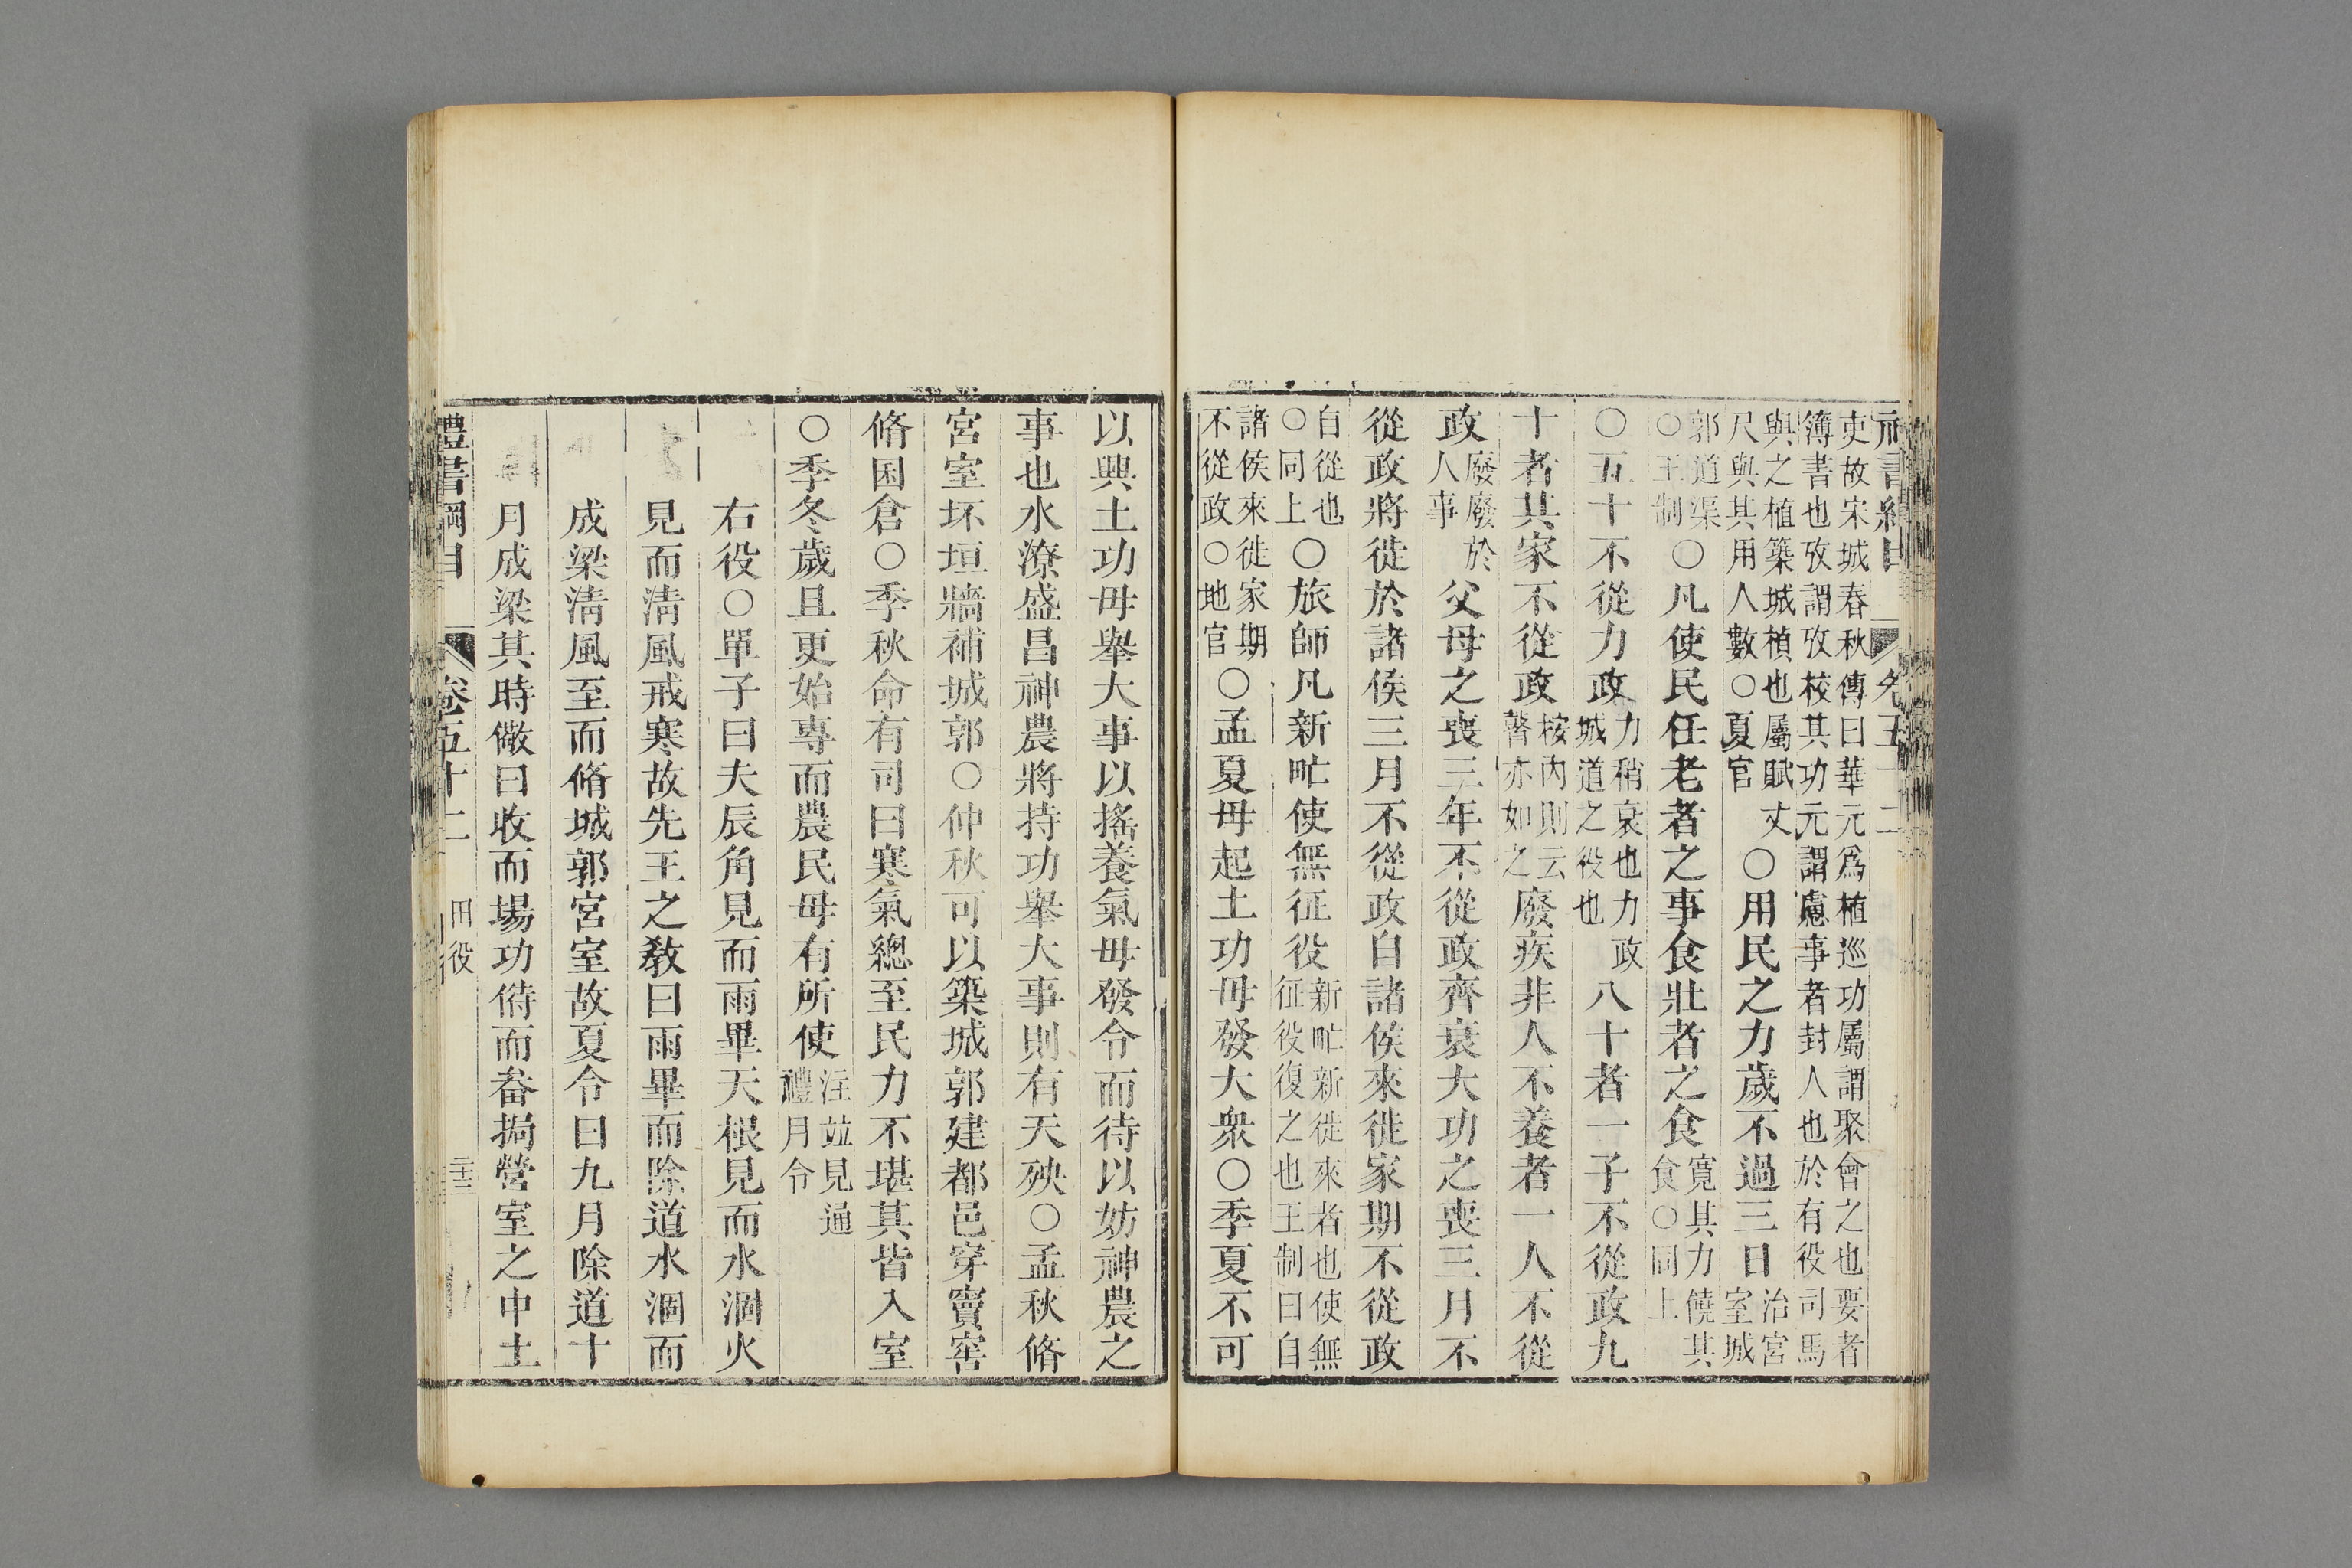 吏故宋城春秋傳曰華元爲植巡功屬謂聚會之也要者
簿書也攷謂攷校其功元謂慮事者封人也於有役司馬
與之植築城楨也屬賦丈
尺與其用人數○夏官
○用民之力歲不過三日
治宮
室城
郭道渠
○王制
○凡使民任老者之事食壯者之食
寬其力饒其
食○同上
○五十不從力政
力稍衰也力政
城道之役也
八十者一子不從政九
十者其家不從政
按內則云
瞽亦如之
廢疾非人不養者一人不從
政
廢廢於
人事
父母之喪三年不從政齊衰大功之喪三月不
從政將徙於諸侯三月不從政自諸侯來徙家期不從政
自從也
○同上
○旅師凡新甿使無征役
新甿新徙來者也使無
征役復之也王制曰自
諸侯來徙家期
不從政○地官
○孟夏毋起土功毋發大衆○季夏不可
以興土功毋舉大事以搖養氣毋發令而待以妨神農之
事也水潦盛昌神農將持功舉大事則有天殃○孟秋脩
宮室坏垣牆補城郭○仲秋可以築城郭建都邑穿竇窖
脩囷倉○季秋命有司曰寒氣總至民力不堪其皆入室
○季冬歲且更始專而農民毋有所使
注竝見通
禮月令
右役○單子曰夫辰角見而雨畢天根見而水涸火
見而淸風戒寒故先王之敎曰雨畢而除道水涸而
成梁淸風至而脩城郭宮室故夏令曰九月除道十
月成梁其時儆曰收而場功偫而畚挶營室之中土
禮書綱目
卷五十二
田役